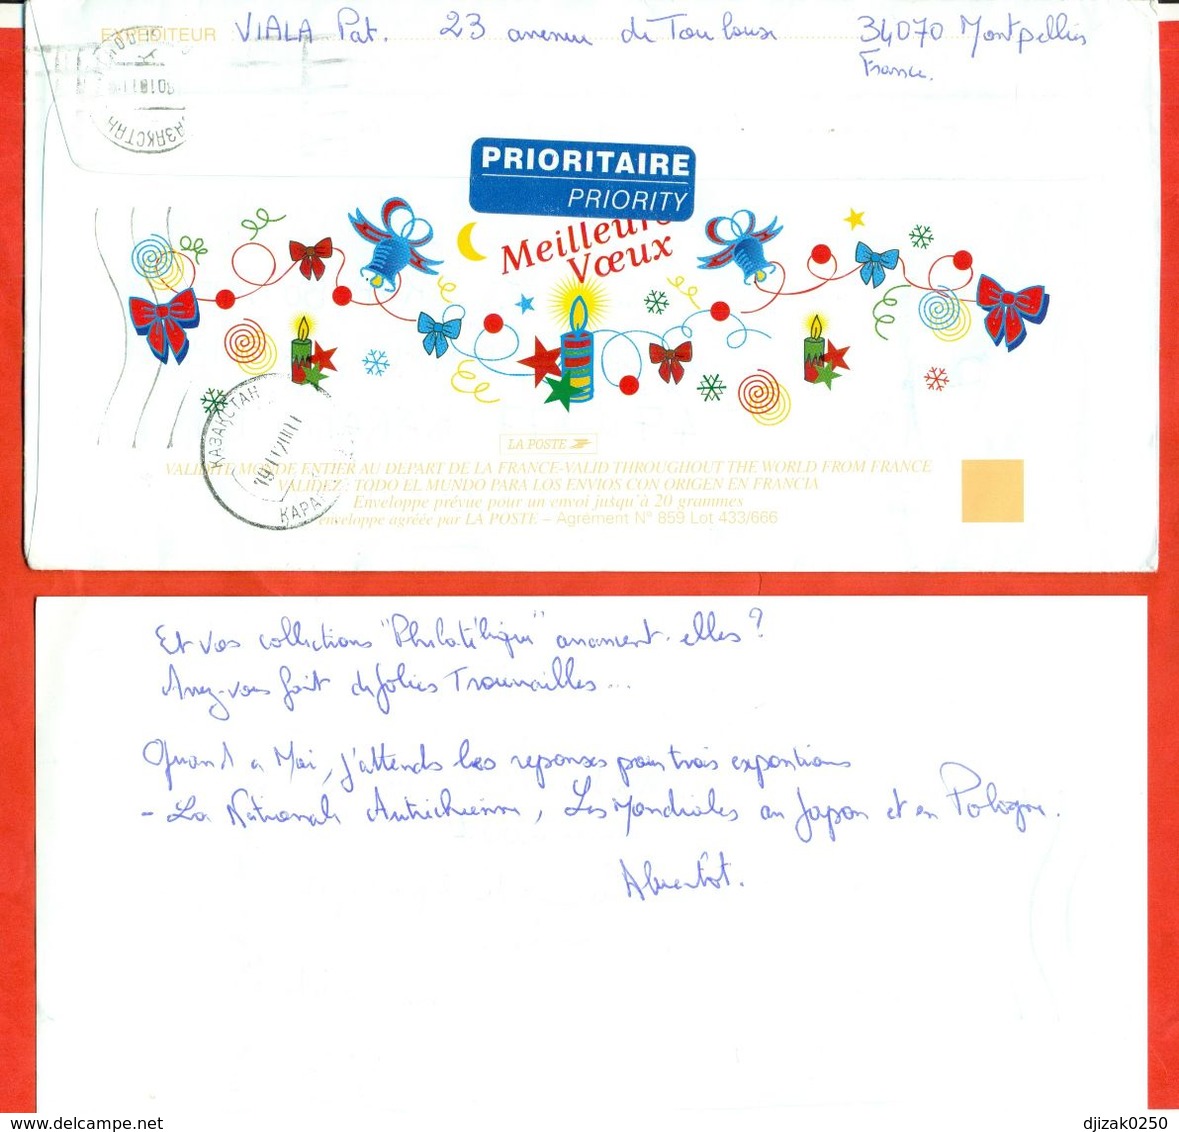 EXPEDITEUR VIALA Pat. 23 avenue de Toulouse 34070 Montpellier
France.
ҚАЗАҚСТАН
PRIORITAIRE
PRIORITY
Meilleurs
Vœux
ҚАЗАҚСТАН
ҚАРА
LA POSTE
VALIDITE MONDE ENTIER AU DEPART DE LA FRANCE-VALID THROUGHOUT THE WORLD FROM FRANCE
VALIDEZ : TODO EL MUNDO PARA LOS ENVIOS CON ORIGEN EN FRANCIA
Enveloppe prévue pour un envoi jusqu'à 20 grammes
enveloppe agréée par LA POSTE – Agrément N° 859 Lot 433/666
Et vos collections "Philatélique" avancent-elles ?
Avez-vous fait de jolies Trouvailles...
Quant a Moi, j'attends les reponses pour trois expositions
- La Nationale Autrichienne, Les Mondiales au Japon et en Pologne.
A bientôt.
delcampe.net
djizak0250